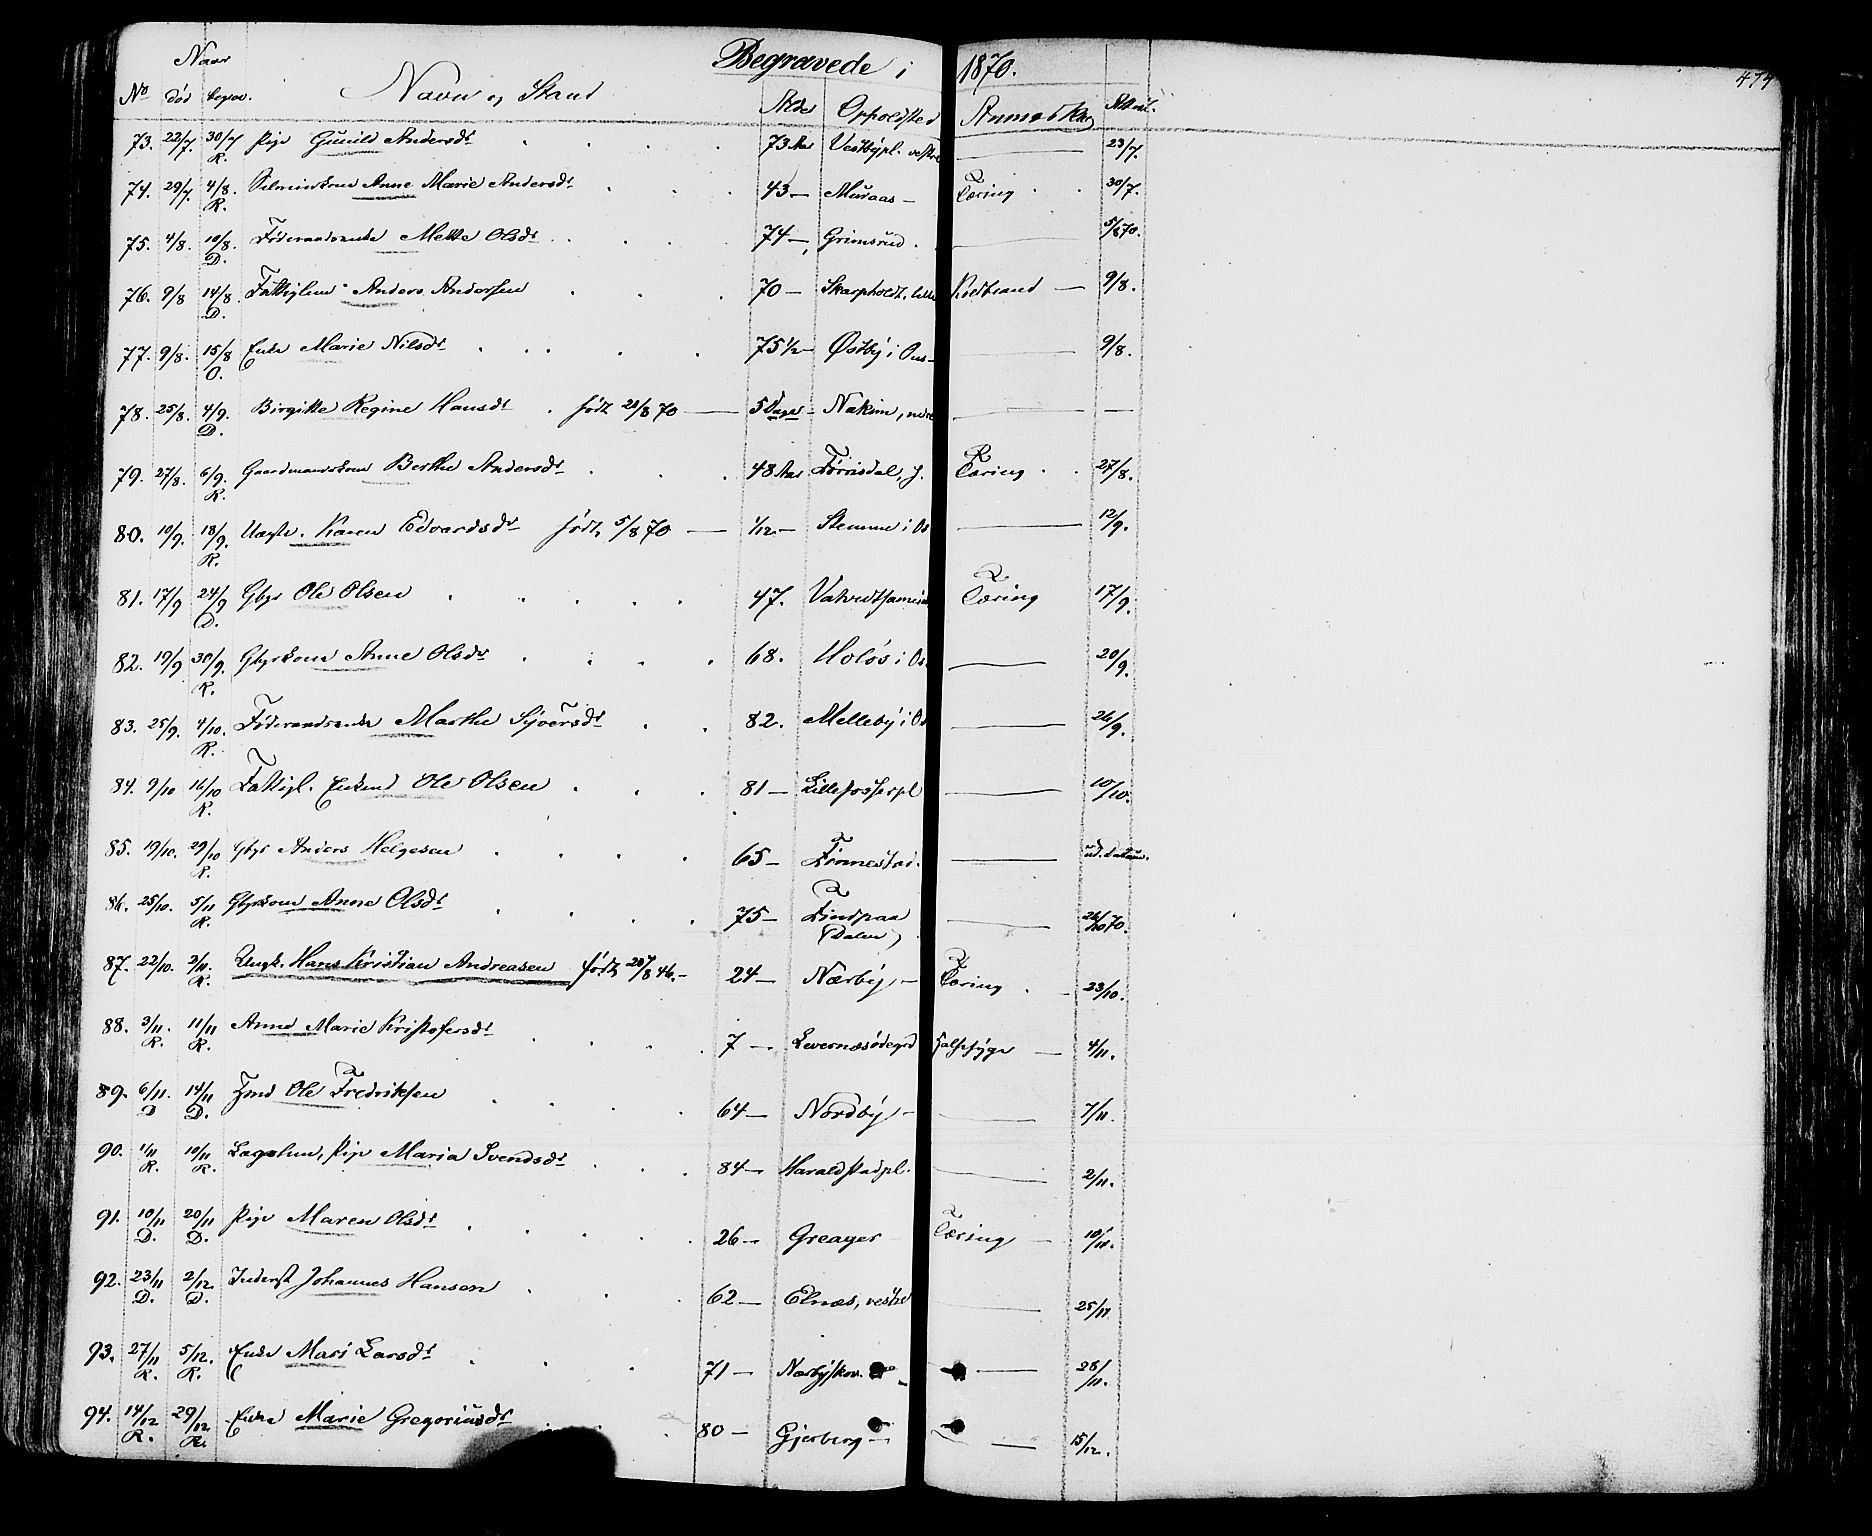 Begravede i 1870. 474
Naar
No død begrav. Navn og Stand Alder Opholdsted Anmærkn
73. 22/7. 30/7 R. Pige Gunild Andersdt 73 Aar Vestbypl. vestre — 23/7.
74. 29/7. 4/8. R. Anne Marie Andersdt 43 — Muraas — Tæring 30/7.
75. 4/8. 10/8. D. Føderaadsenke Mette Olsdt 74 — Grimsrud. — 5/8 70.
76. 9/8 14/8. D. Fattiglem Anders Andersen 70 — Skarpholdt, lille Koldbrand — 9/8.
77. 9/8. 15/8 O. Enke Marie Nilsdt 75 1/2 — Østby i Ous — 9/8.
78. 25/8. 4/9. D. Birgitte Regine Hansdt født 20/8 70 — 5 Dage — Nakim, nedre — —
79. 27/8. 6/9. R. Gaardmandskone Berthe Andersdt 48 Aar Tørrisdal, Tæring 27/8.
80. 10/9. 18/9. R. Uægte. Karen Edvardsdt født 5/8 70 — 1/12 — Stemme i Os — 12/9.
81. 17/9 24/9 D. Gbgr Ole Olsen 47. Tæring 17/9.
82. 19/9 30/9. R. Gbgrkone Anne Olsdt 68. Holøs i Os. — 20/9.
83. 25/9. 4/10. R. Føderaadsenke Marthe Syversdt 82. Melleby i Os — 26/9.
84. 9/10 16/10 R. Fattigl. Enkemd Ole Olsen 81 — Lillefosserpl — 10/10.
85. 19/10. 29/10 R. Gbgr Anders Helgesen 65 — Finnestad. — ud. datum.
86. 25/10. 5/11 R. Gbgrkone Anne Olsdt 75 — Findpaa — 26/10 70.
(Dalen)
87. 22/10. 2/11. R. Ungk. Hans Kristian Andreasen født 20/8 46. — 24 — Nærby — Tæring 23/10.
88. 3/11. R. 11/11 R. Anne Marie Kristofersdt 7 — Levernæsødegrd Halssyge — 4/11.
89. 6/11. D 14/11 D. Ole Fredriksen 64 — Nordby — — 7/11.
90. 1/11 R. 10/11 R. Lægslem, Pige Maria Svendsdt 84 — Haraldstadpl. — 2/11.
91. 10/11 D. 20/11 D. Pige Maren Olsdt 26 — Greager Tæring — 10/11.
92. 23/11 D. 2/12. D. Inderst Johannes Hansen 62 — Elnæs, vestre — 25/11
93. 27/11 R. 5/12. R. Enke Mari Larsdt 71 — Nærbyskov. — 28/11.
94. 14/12 R. 29/12. R. Enke Marie Gregoriusdt 80 — Gjerberg — — 15/12.